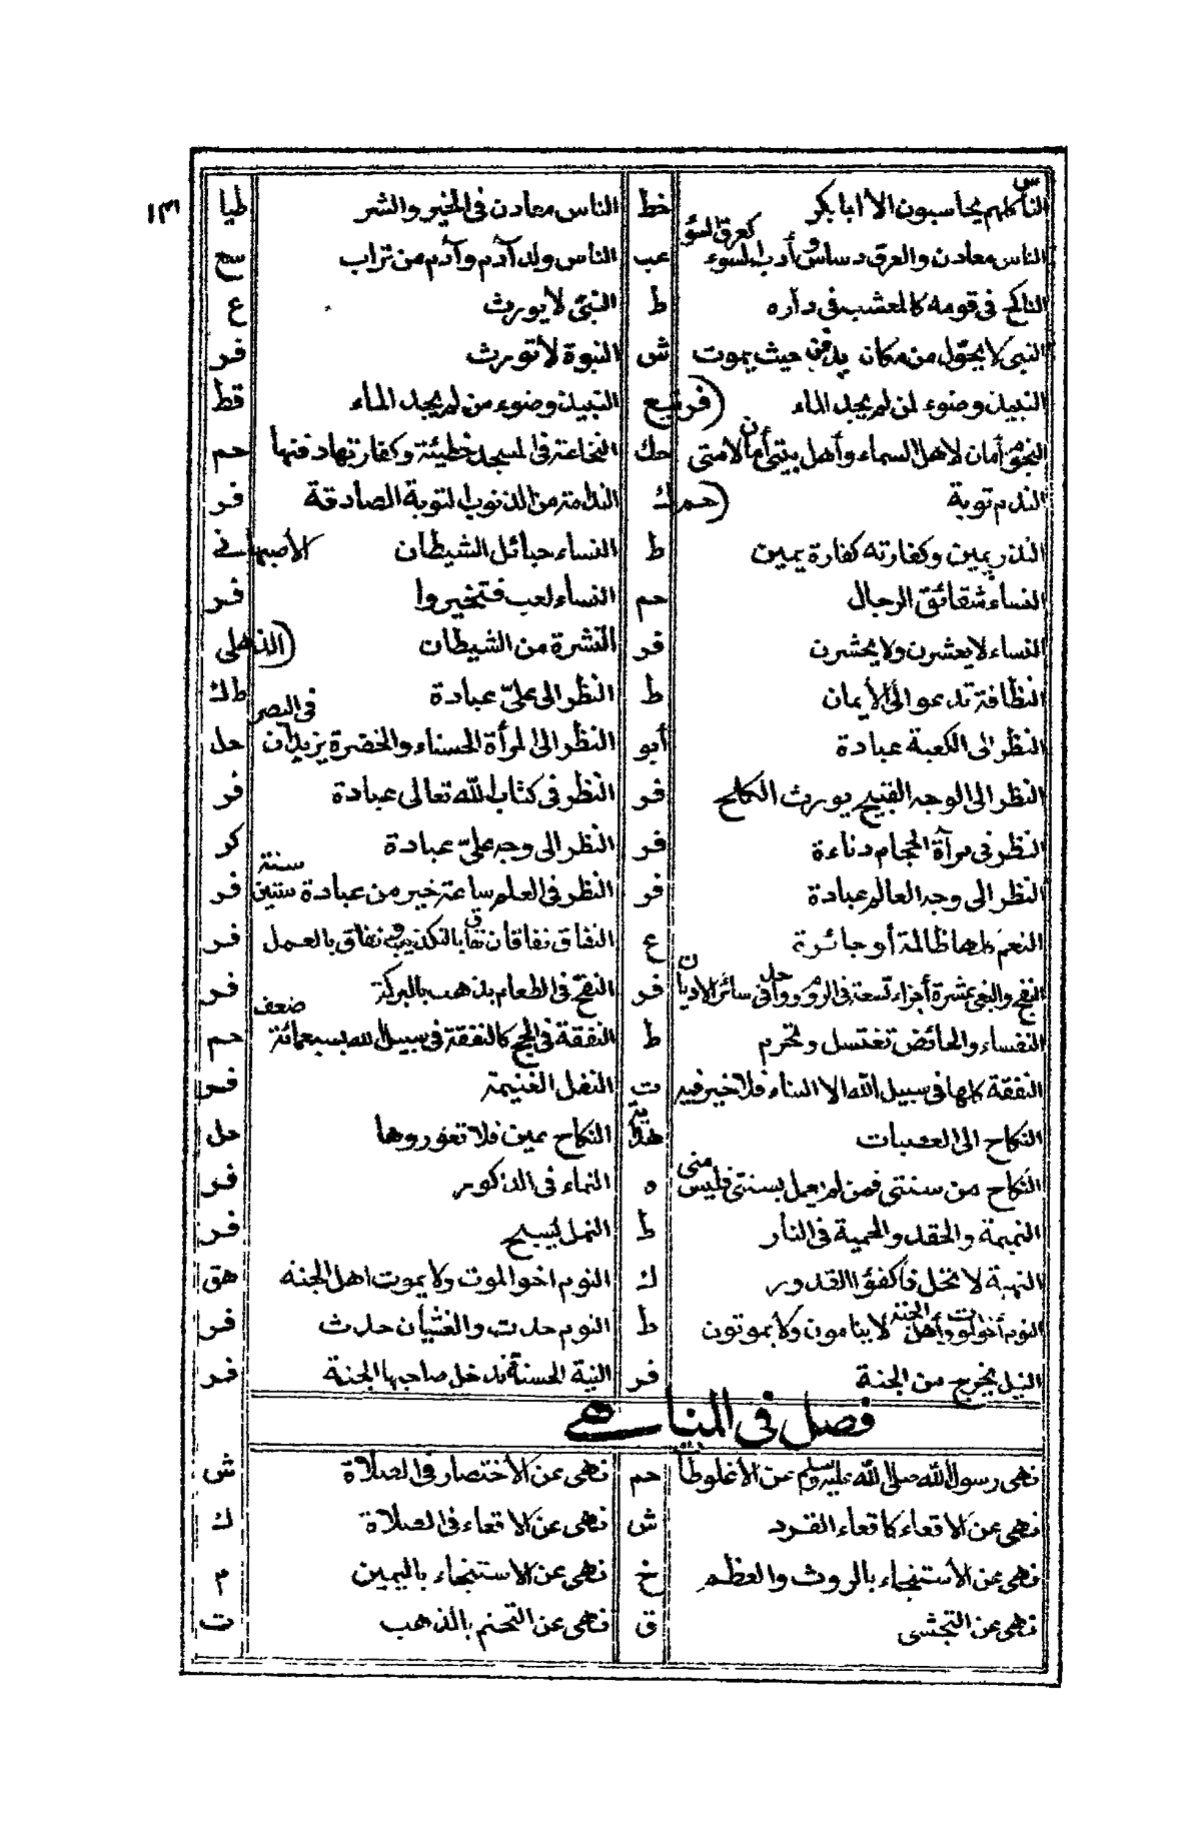 ١٣١
الناس كلهم يحاسبون الا أبا بكر خط الناس معادن فى الخير والشر طيا
الناس معادن والعرق دساس وأدب السوء كعرق السوء عب الناس ولد آدم وآدم من تراب سع
الناكح فى قومه كالمعشب فى داره ط النبى لا يورث ع
النبى لا يحوّل من مكان يدفن حيث يموت ش النبوة لا تورث فر
النبيذ وضوء لمن لم يجد الماء النبيذ وضوء من لم يجد الماء قط
النجوم أمان لاهل السماء وأهل بيتى أمان لامتى حك النخاعة فى المسجد خطيئة وكفارتها دفنها حم
الندم توبة (حم ك الندامة من الذنوب التوبة الصادقة فر
النذر يمين وكفارته كفارة يمين ط النساء حبائل الشيطان الأصبهانى
النساء شقائق الرجال حم النساء لعب فتخيروا فر
النساء لا يعشرن ولا يحشرن فر النشرة من الشيطان (الذهلى
النظافة تدعو الى الأيمان ط النظر الى علىّ عبادة ط ك
النظر الى الكعبة عبادة أبو النظر الى المرأة الحسناء والخضرة يزيدان فى البصر حل
النظر الى الوجه القبيح يورث الكلح فر النظر فى كتاب الله تعالى عبادة فر
النظر فى مرآة الحجام دناءة فر النظر الى وجه علىّ عبادة كر
النظر الى وجه العالم عبادة فر النظر فى العلم ساعة خير من عبادة ستين سنة فر
ع النفاق نفاقان نفاق بالتكذيب ونفاق بالعمل فر
فر النفخ فى الطعام يذهب بالبركة فر
النفساء والحائض تغتسل وتحرم ط النفقة فى الحج كالنفقة فى سبيل الله بسبعمائة ضعف حم
النفقة كلها فى سبيل الله الا البناء فلا خير فيه ت النفل الغنيمة فر
النكاح الى العصبات النكاح يمين فلا تغوروها حل
النكاح من سنتى فمن لم يعمل بسنتى فليس منى ه النماء فى الذكور فر
النميمة والحقد والحمية فى النار ط النمل يسبح فر
النهبة لا تحل فأكفؤا القدور ك النوم اخو الموت ولا يموت اهل الجنة هق
النوم أخو الموت وأهل الجنة لا ينامون ولا يموتون ط النوم حدث والغثيان حدث فر
النيل يخرج من الجنة فر النية الحسنة تدخل صاحبها الجنة فر
فصل فى المناهى
نهى رسول الله صلى الله عليه وسلم عن الأغلوطات حم نهى عن الأختصار فى الصلاة ش
نهى عن الاقعاء كاقعاء القرد ش نهى عن الاقعاء فى الصلاة ك
نهى عن الأستنجاء بالروث والعظم خ نهى عن الاستنجاء باليمين م
نهى عن التجشى ق نهى عن التختم بالذهب ت